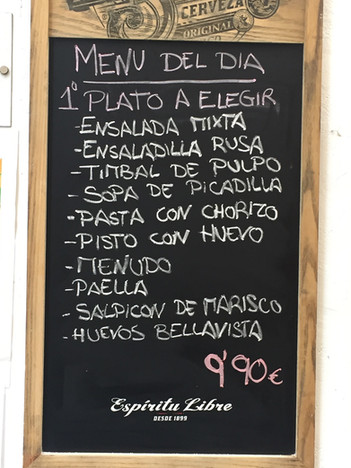 CERVEZA
ORIGINAL
MENU DEL DIA
1º PLATO A ELEGIR
-ENSALADA MIXTA
-ENSALADILLA RUSA
-TIMBAL DE PULPO
-SOPA DE PICADILLA
-PASTA CON CHORIZO
-PISTO CON HUEVO
-MENUDO
-PAELLA
-SALPICON DE MARISCO
-HUEVOS BELLAVISTA
9'90€
Espíritu Libre
DESDE 1899